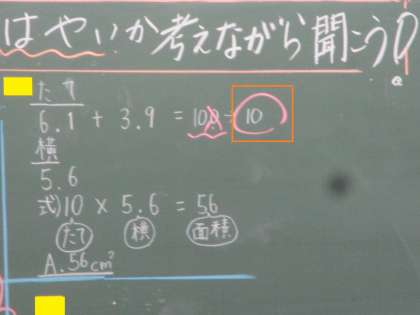 はやいか考えながら聞こう
たて
6.1 + 3.9 = 10.0 = 10
横
5.6
式)10 × 5.6 = 56
たて 横 面積
A.56cm²